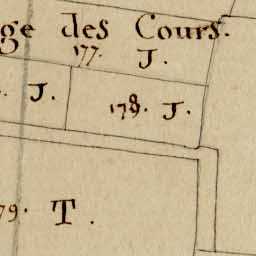 ge des Cours.
177. J.
. J. 178. J.
79. T.